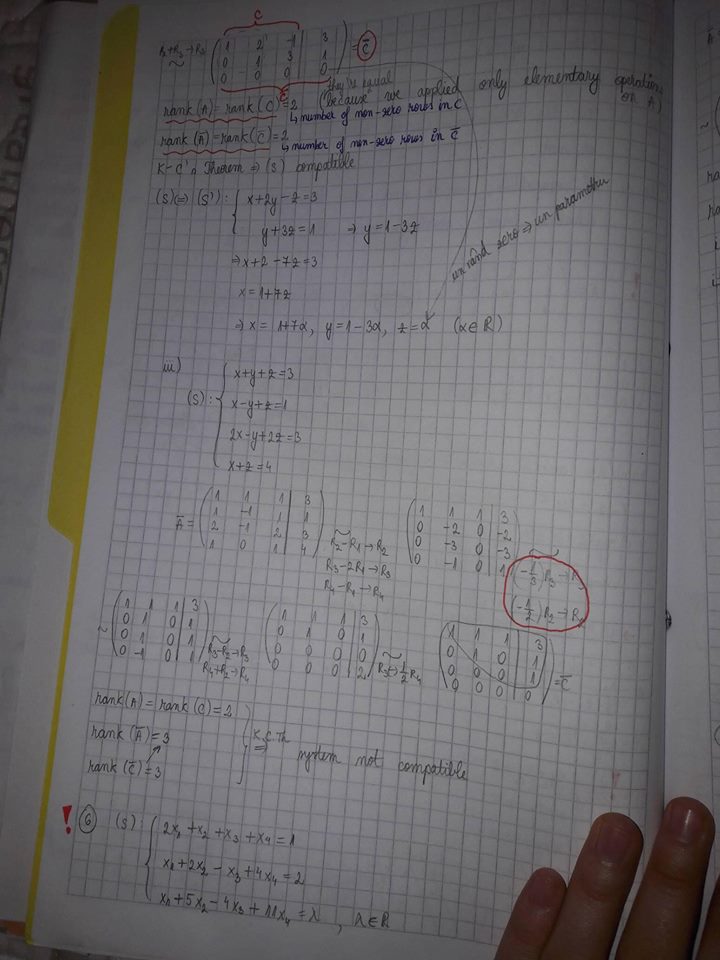 C
R2+R3→R3 ~ ( 1 2 -1 | 3
0 1 3 | 1
0 0 0 | 0 ) = C̄
C
they're equal
rank(A) = rank(C) = 2 (because we applied only elementary operations on A)
↳ number of non-zero rows in C
rank(Ā) = rank(C̄) = 2
↳ number of non-zero rows in C̄
K-C's Theorem ⇒ (S) compatible
(S) ⇔ (S'): { x+2y-z=3
y+3z=1 ⇒ y=1-3z
un rând zero ⇒ un parametru
⇒ x+2-7z=3
x=1+7z
⇒ x=1+7α, y=1-3α, z=α (α∈R)
iii)
(S): { x+y+z=3
x-y+z=1
2x-y+2z=3
x+z=4
Ā = ( 1 1 1 | 3
1 -1 1 | 1
2 -1 2 | 3
1 0 1 | 4 )
~
R2-R1→R2
R3-2R1→R3
R4-R1→R4
( 1 1 1 | 3
0 -2 0 | -2
0 -3 0 | -3
0 -1 0 | 1 )
~
(-1/3)R3→R
(-1/2)R2→R
~ ( 1 1 1 | 3
0 1 0 | 1
0 1 0 | 1
0 -1 0 | 1 )
~
R3-R2→R3
R4+R2→R4
( 1 1 1 | 3
0 1 0 | 1
0 0 0 | 0
0 0 0 | 2 )
~
R3↔1/2R4
( 1 1 1 | 3
0 1 0 | 1
0 0 0 | 1
0 0 0 | 0 ) = C̄
rank(A) = rank(C) = 2
rank(Ā) = 3
rank(C̄) = 3
K.C.Th ⇒ system not compatible
! 6 (S): { 2x1+x2+x3+x4=1
x1+2x2-x3+4x4=2
x1+5x2-4x3+11x4=λ, λ∈R